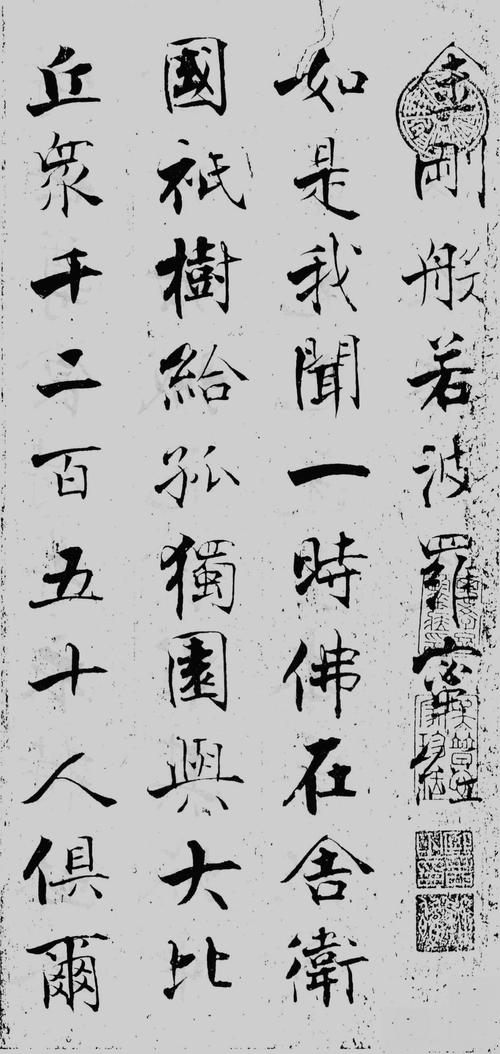 金剛般若波羅蜜經
如是我聞一時佛在舍衛
國祇樹給孤獨園與大比
丘眾千二百五十人俱爾